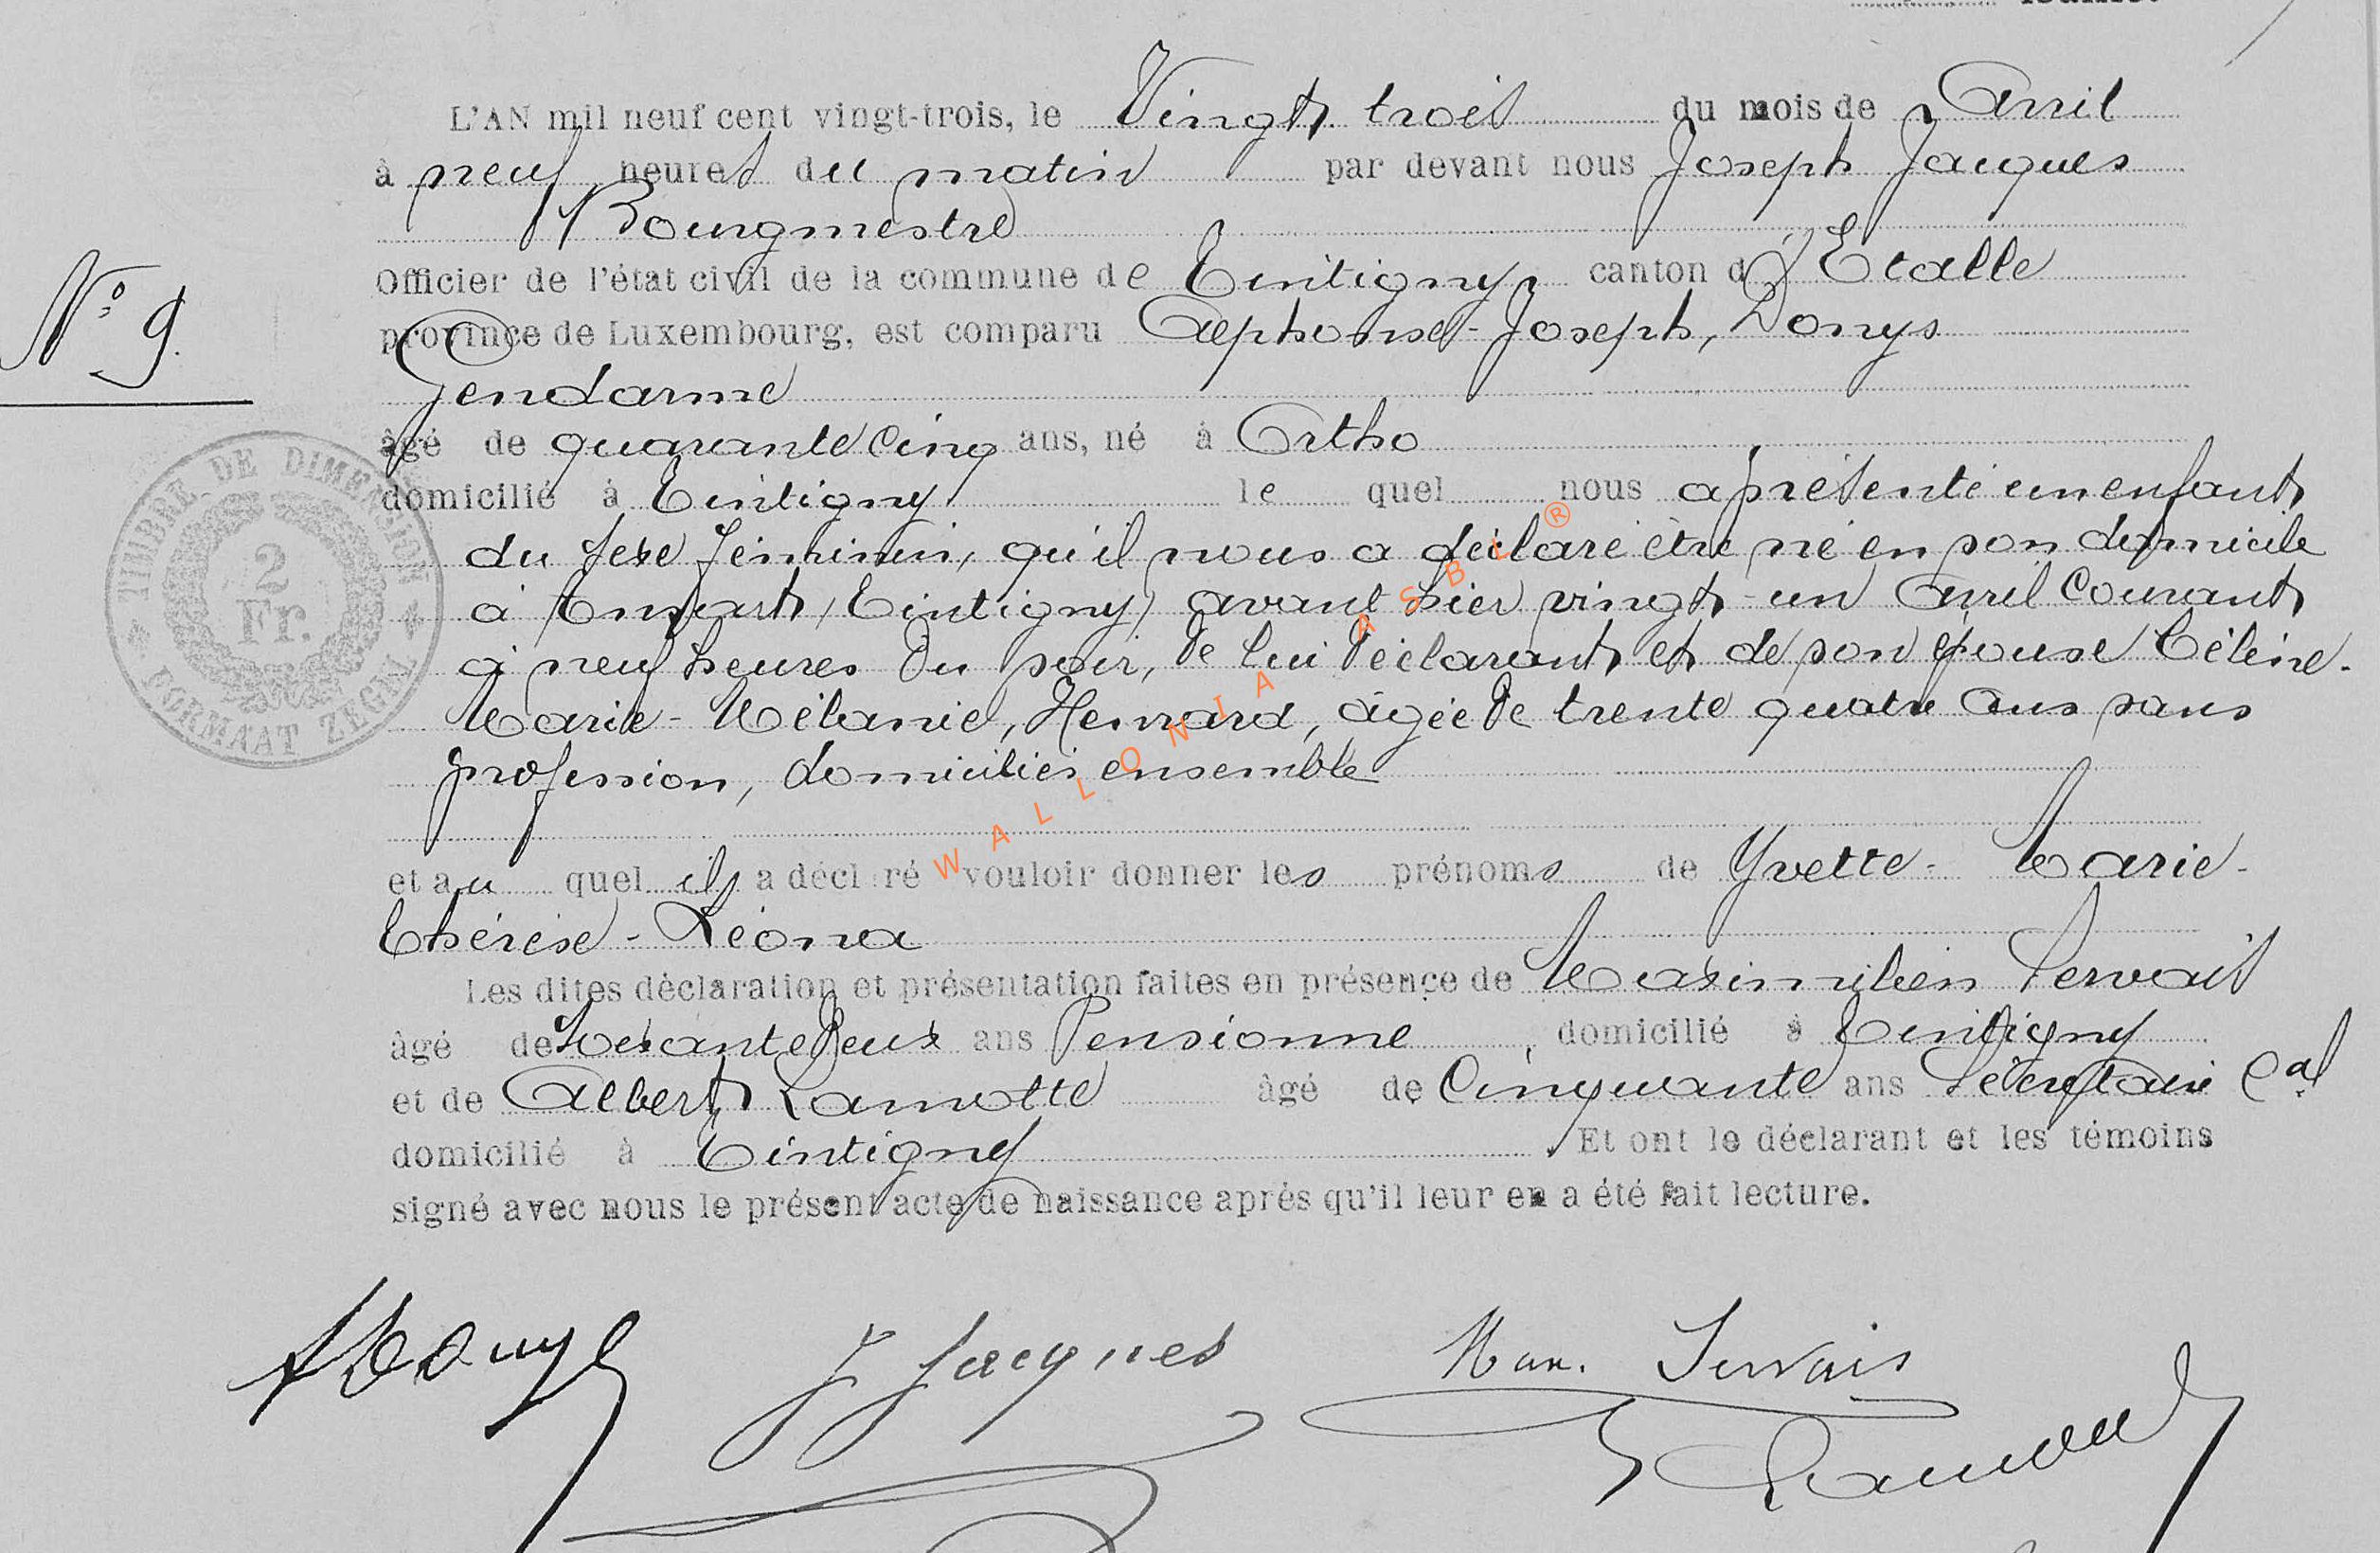 feuillet
L'AN mil neuf cent vingt-trois, le Vingt trois du mois de Avril
à neuf heures du matin par devant nous Joseph Jacques
Bourgmestre
Officier de l'état civil de la commune de Tintigny canton d'Etalle
N° 9.
province de Luxembourg, est comparu Alphonse-Joseph, Donys
Gendarme
âgé de quarante cinq ans, né à Ortho
domicilié à Tintigny le quel nous a présenté un enfant
du sexe féminin, qu'il nous a déclaré être né en son domicile
à Ansart, (Tintigny) avant hier vingt-un Avril courant
à neuf heures du soir, de lui déclarant et de son épouse Céline-
Marie-Mélanie, Henrard, âgée de trente quatre ans sans
profession, domiciliés ensemble
et au quel il a déclaré vouloir donner les prénoms de Yvette-Marie-
Thérèse-Léona
Les dites déclaration et présentation faites en présence de Maximilien Servais
âgé de soixante deux ans Pensionné, domicilié à Tintigny
et de Albert Lamotte âgé de Cinquante ans Secrétaire Cal
domicilié à Tintigny. Et ont le déclarant et les témoins
signé avec nous le présent acte de naissance après qu'il leur en a été fait lecture.
ADonys J Jacques Max. Servais
TIMBRE DE DIMENSION
2
Fr.
FORMAAT ZEGEL
WALLONIA ASBL ®